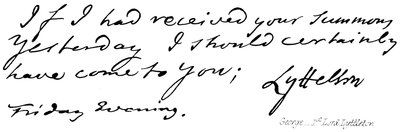 If I had received your Summons
Yesterday I should certainly
have come to You;
Lyttelton
Friday Evening.
George 1st Lord Lyttleton